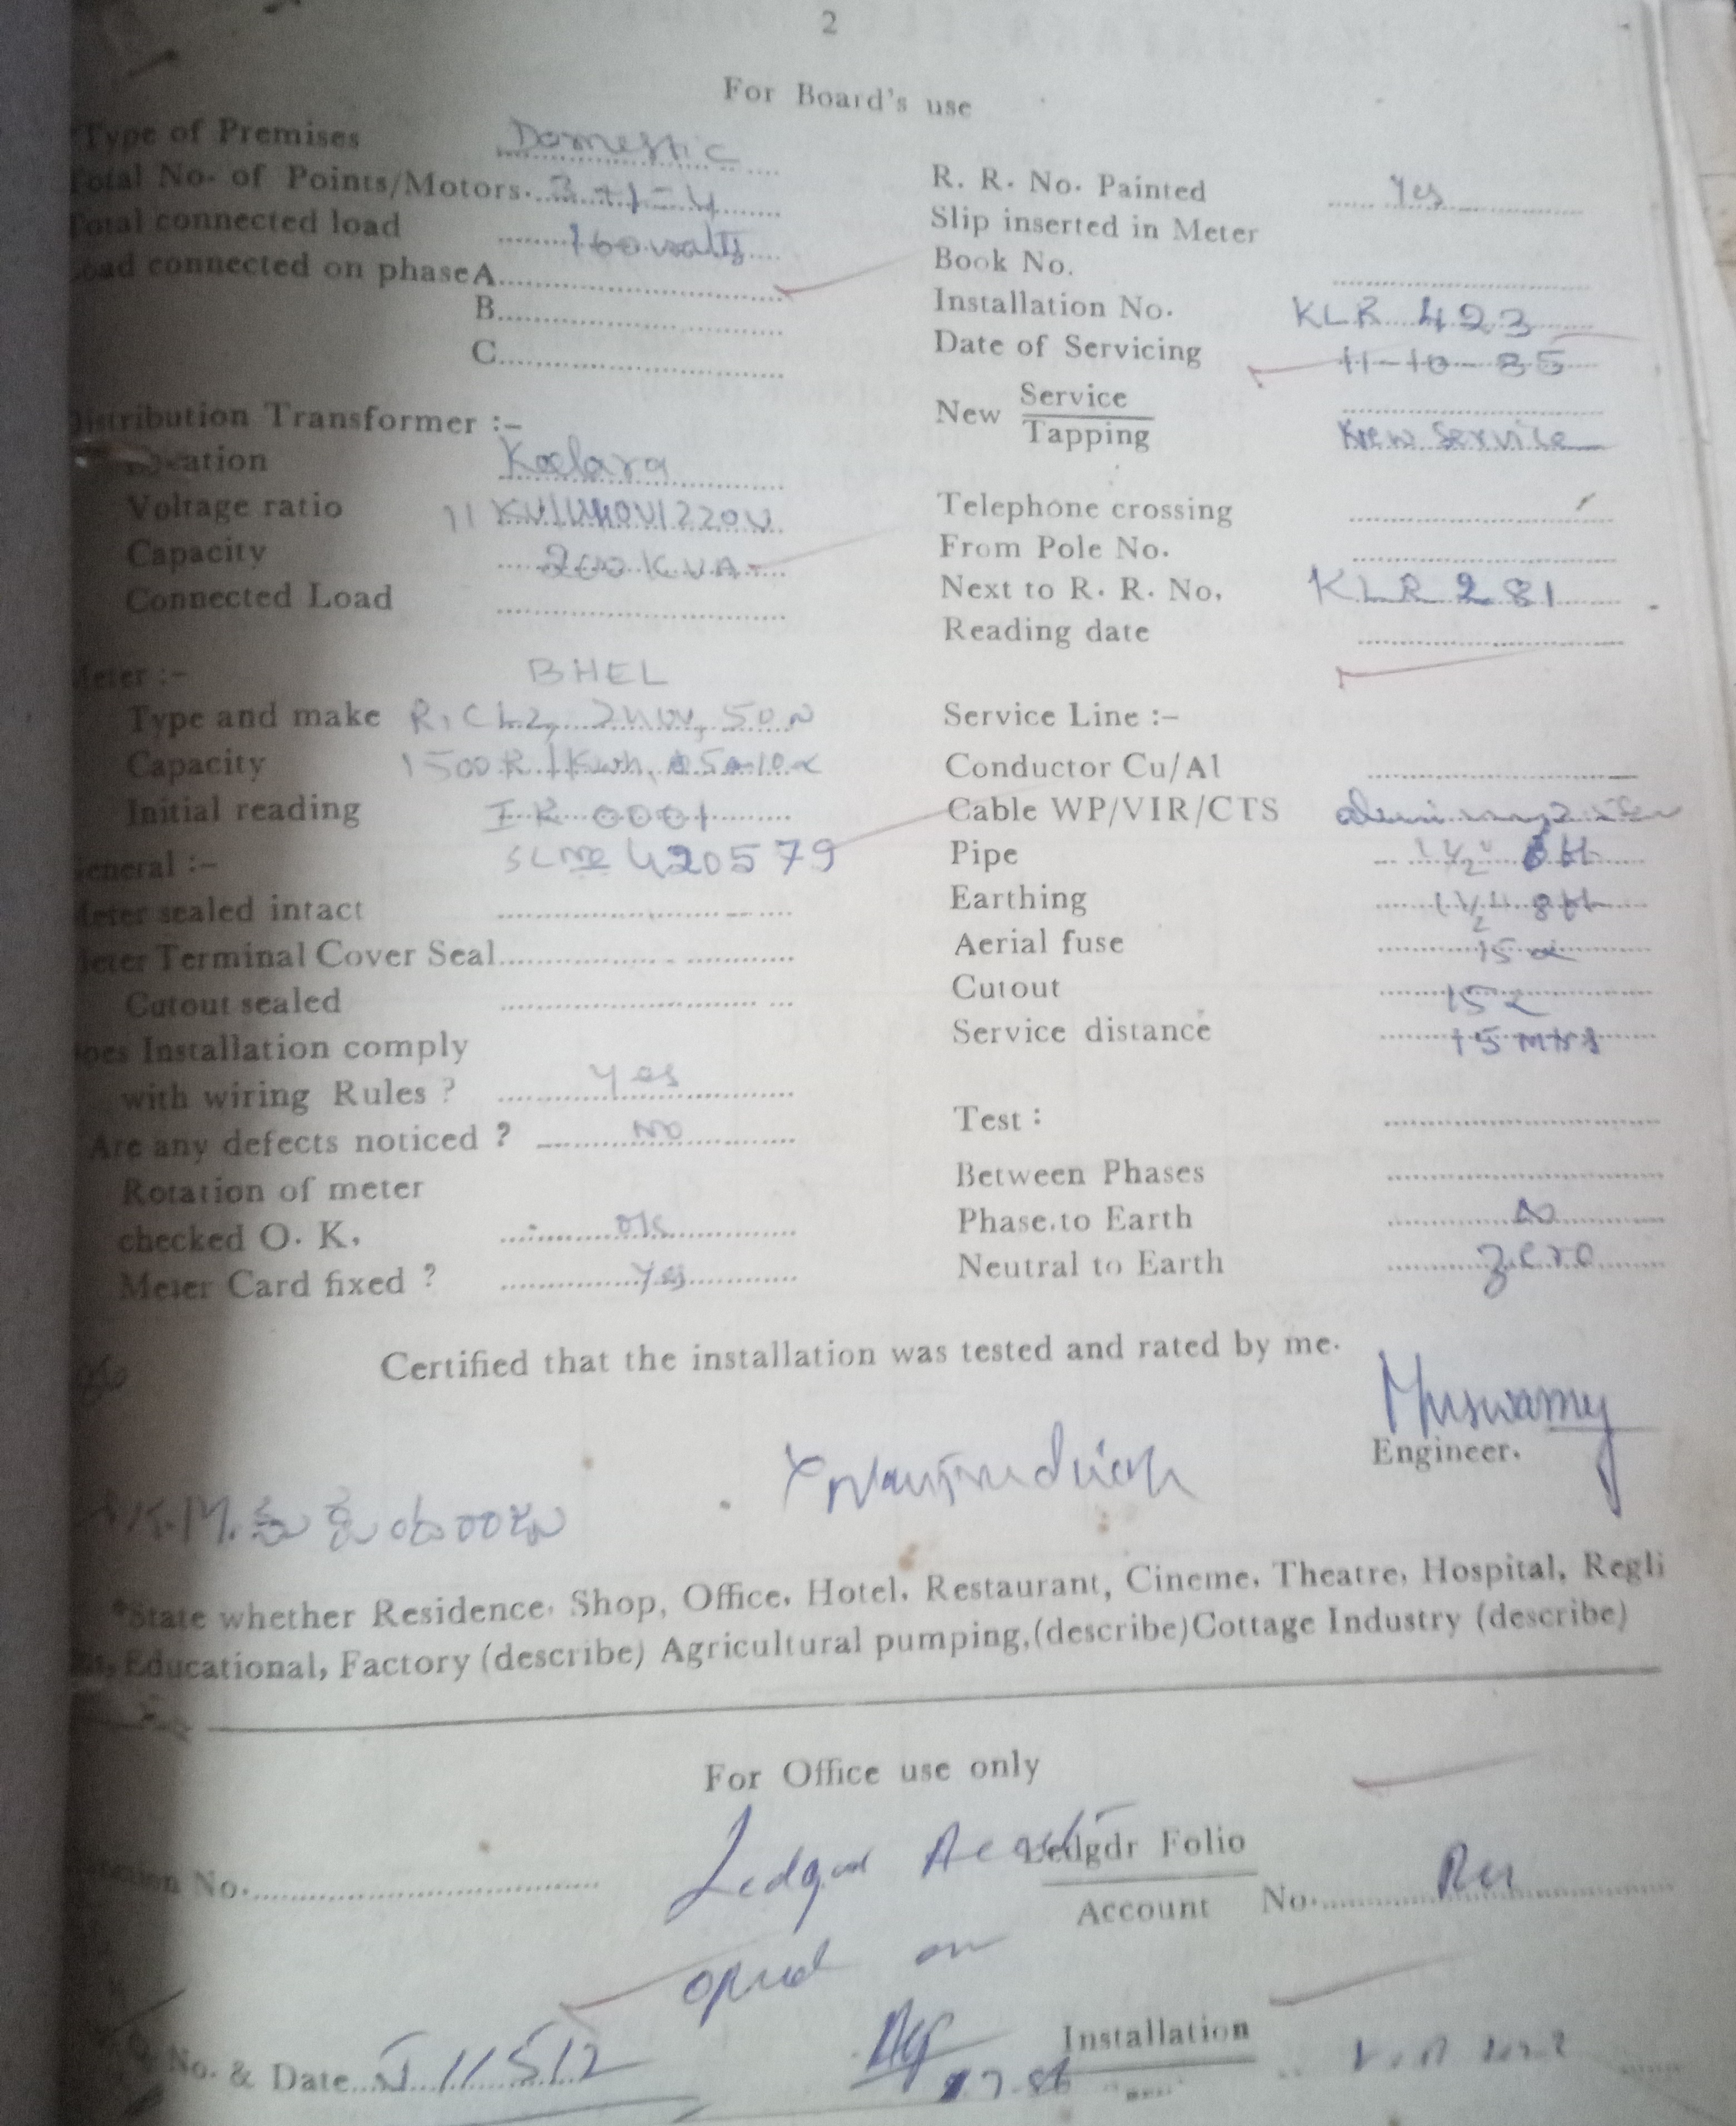 2
For Board's use
Type of Premises Domestic
Total No. of Points/Motors. 3+1=4
Total connected load 160 watts
Load connected on phase A
B
C
Distribution Transformer :-
Location Koelara
Voltage ratio 11 KV/440V/220V
Capacity 200 KVA
Connected Load
Meter :- BHEL
Type and make
Capacity 1500 R/Kwh,
Initial reading I R 0001
General :- SL no 420579
Meter sealed intact
Meter Terminal Cover Seal
Cutout sealed
Does Installation comply
with wiring Rules ? Yes
Are any defects noticed ? No
Rotation of meter
checked O. K. ok
Meter Card fixed ? Yes
R. R. No. Painted Yes
Slip inserted in Meter
Book No.
Installation No. KLR 423
Date of Servicing 11-10-85
New Service
Tapping New Service
Telephone crossing
From Pole No.
Next to R. R. No. KLR 281
Reading date
Service Line :-
Conductor Cu/Al
Cable WP/VIR/CTS
Pipe 1½"
Earthing 1½" 8ft
Aerial fuse 15
Cutout 15
Service distance 15 mtrs
Test :
Between Phases
Phase.to Earth
Neutral to Earth zero
Certified that the installation was tested and rated by me.
Engineer.
K.M.
*State whether Residence. Shop, Office. Hotel. Restaurant, Cineme. Theatre, Hospital, Regli
Educational, Factory (describe) Agricultural pumping,(describe)Cottage Industry (describe)
For Office use only
No. Ledger Ledgdr Folio
Account No.
opened on
No. & Date J 11512 Installation